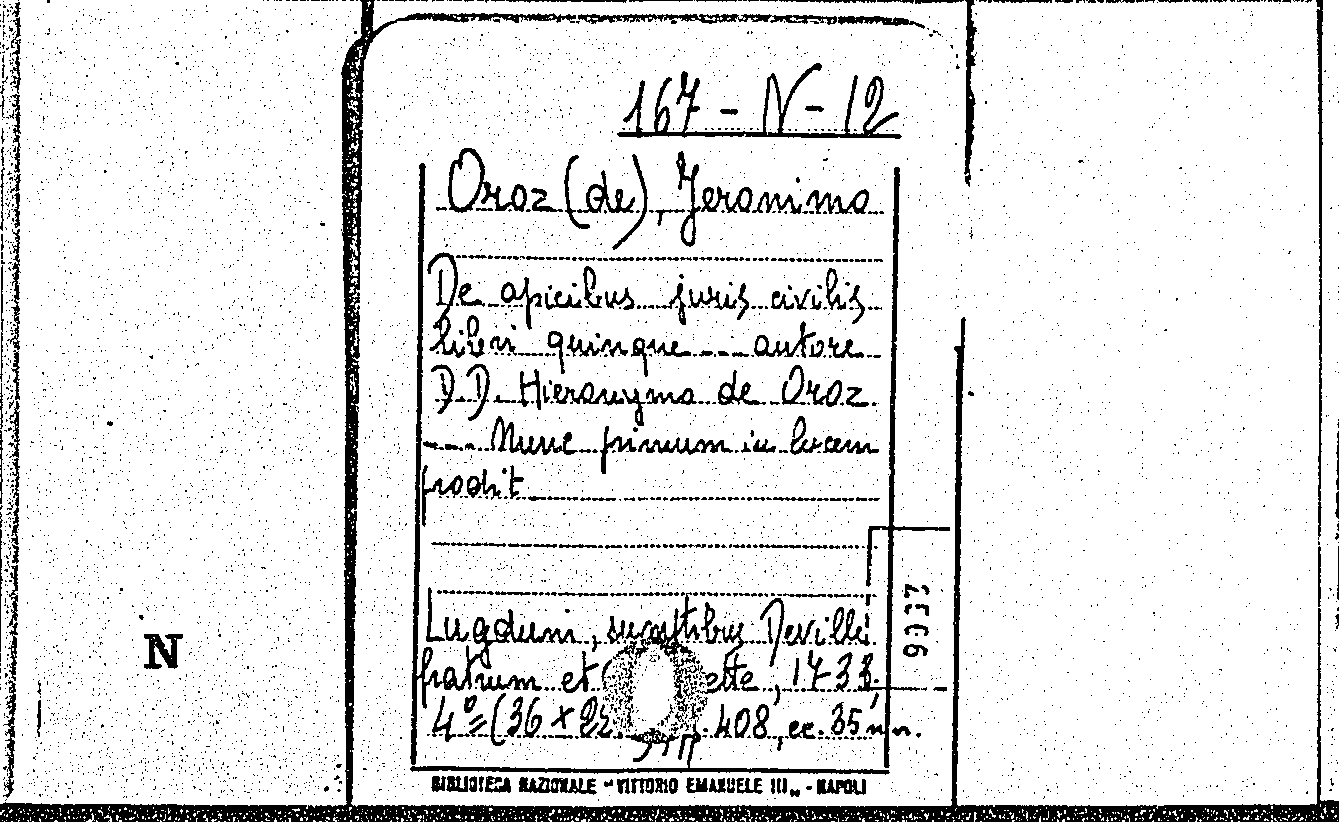 167 - N - 12
Oroz (de), Jeronimo
De apicibus juris civilis
libri quinque ... autore
D.D. Hieronymo de Oroz
.... Nunc primum in lucem
prodit
Lugduni, sumptibus Deville
fratrum et ette, 1733,
4º= (36 x 408, cc. 35 n n.
N
BIBLIOTECA NAZIONALE - "VITTORIO EMANUELE III„ - NAPOLI